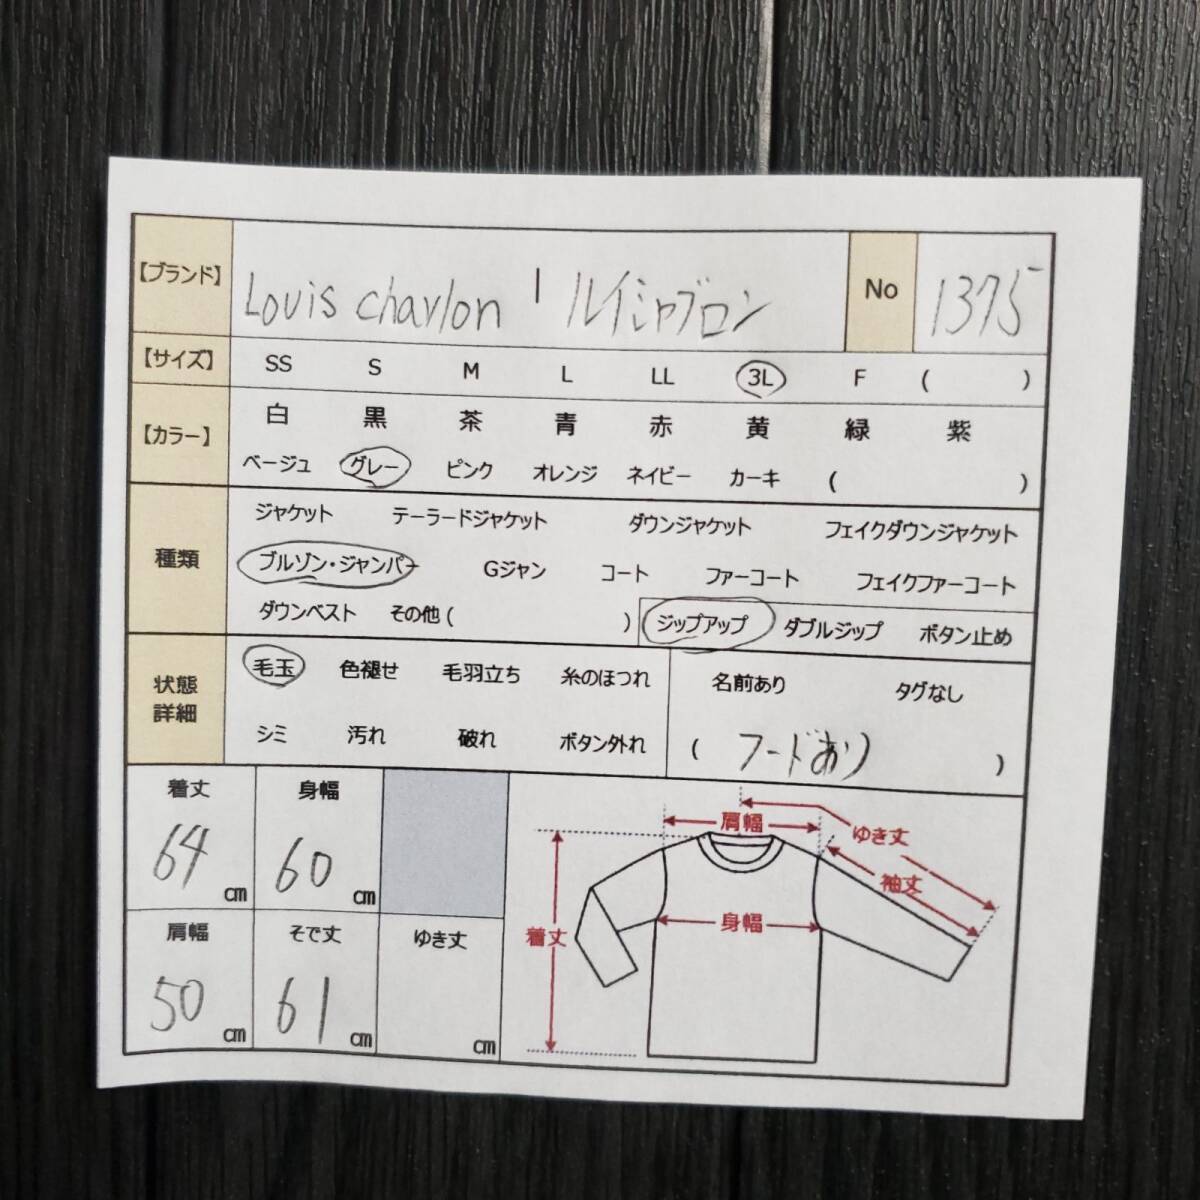 【ブランド】 Louis chavlon | ルイシャブロン No 1375
【サイズ】 SS S M L LL 3L F ( )
【カラー】 白 黒 茶 青 赤 黄 緑 紫
ベージュ グレー ピンク オレンジ ネイビー カーキ ( )
種類 ジャケット テーラードジャケット ダウンジャケット フェイクダウンジャケット
ブルゾン・ジャンパー Gジャン コート ファーコート フェイクファーコート
ダウンベスト その他 ( ) ジップアップ ダブルジップ ボタン止め
状態
詳細
毛玉 色褪せ 毛羽立ち 糸のほつれ 名前あり タグなし
シミ 汚れ 破れ ボタン外れ ( フードあり )
着丈 身幅
64 cm 60 cm
肩幅 そで丈 ゆき丈
50 cm 61 cm cm
肩幅 ゆき丈
袖丈
着丈 身幅